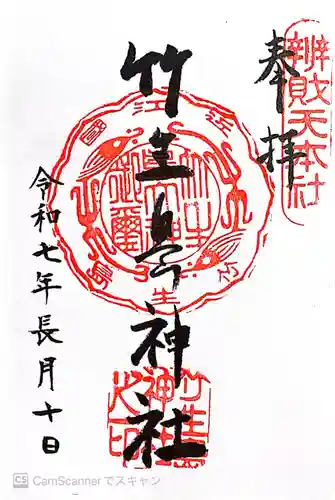 奉拝
辨財天本社
竹生島神社
近江國竹生島
竹生島神社之印
令和七年長月十日
CS CamScannerでスキャン